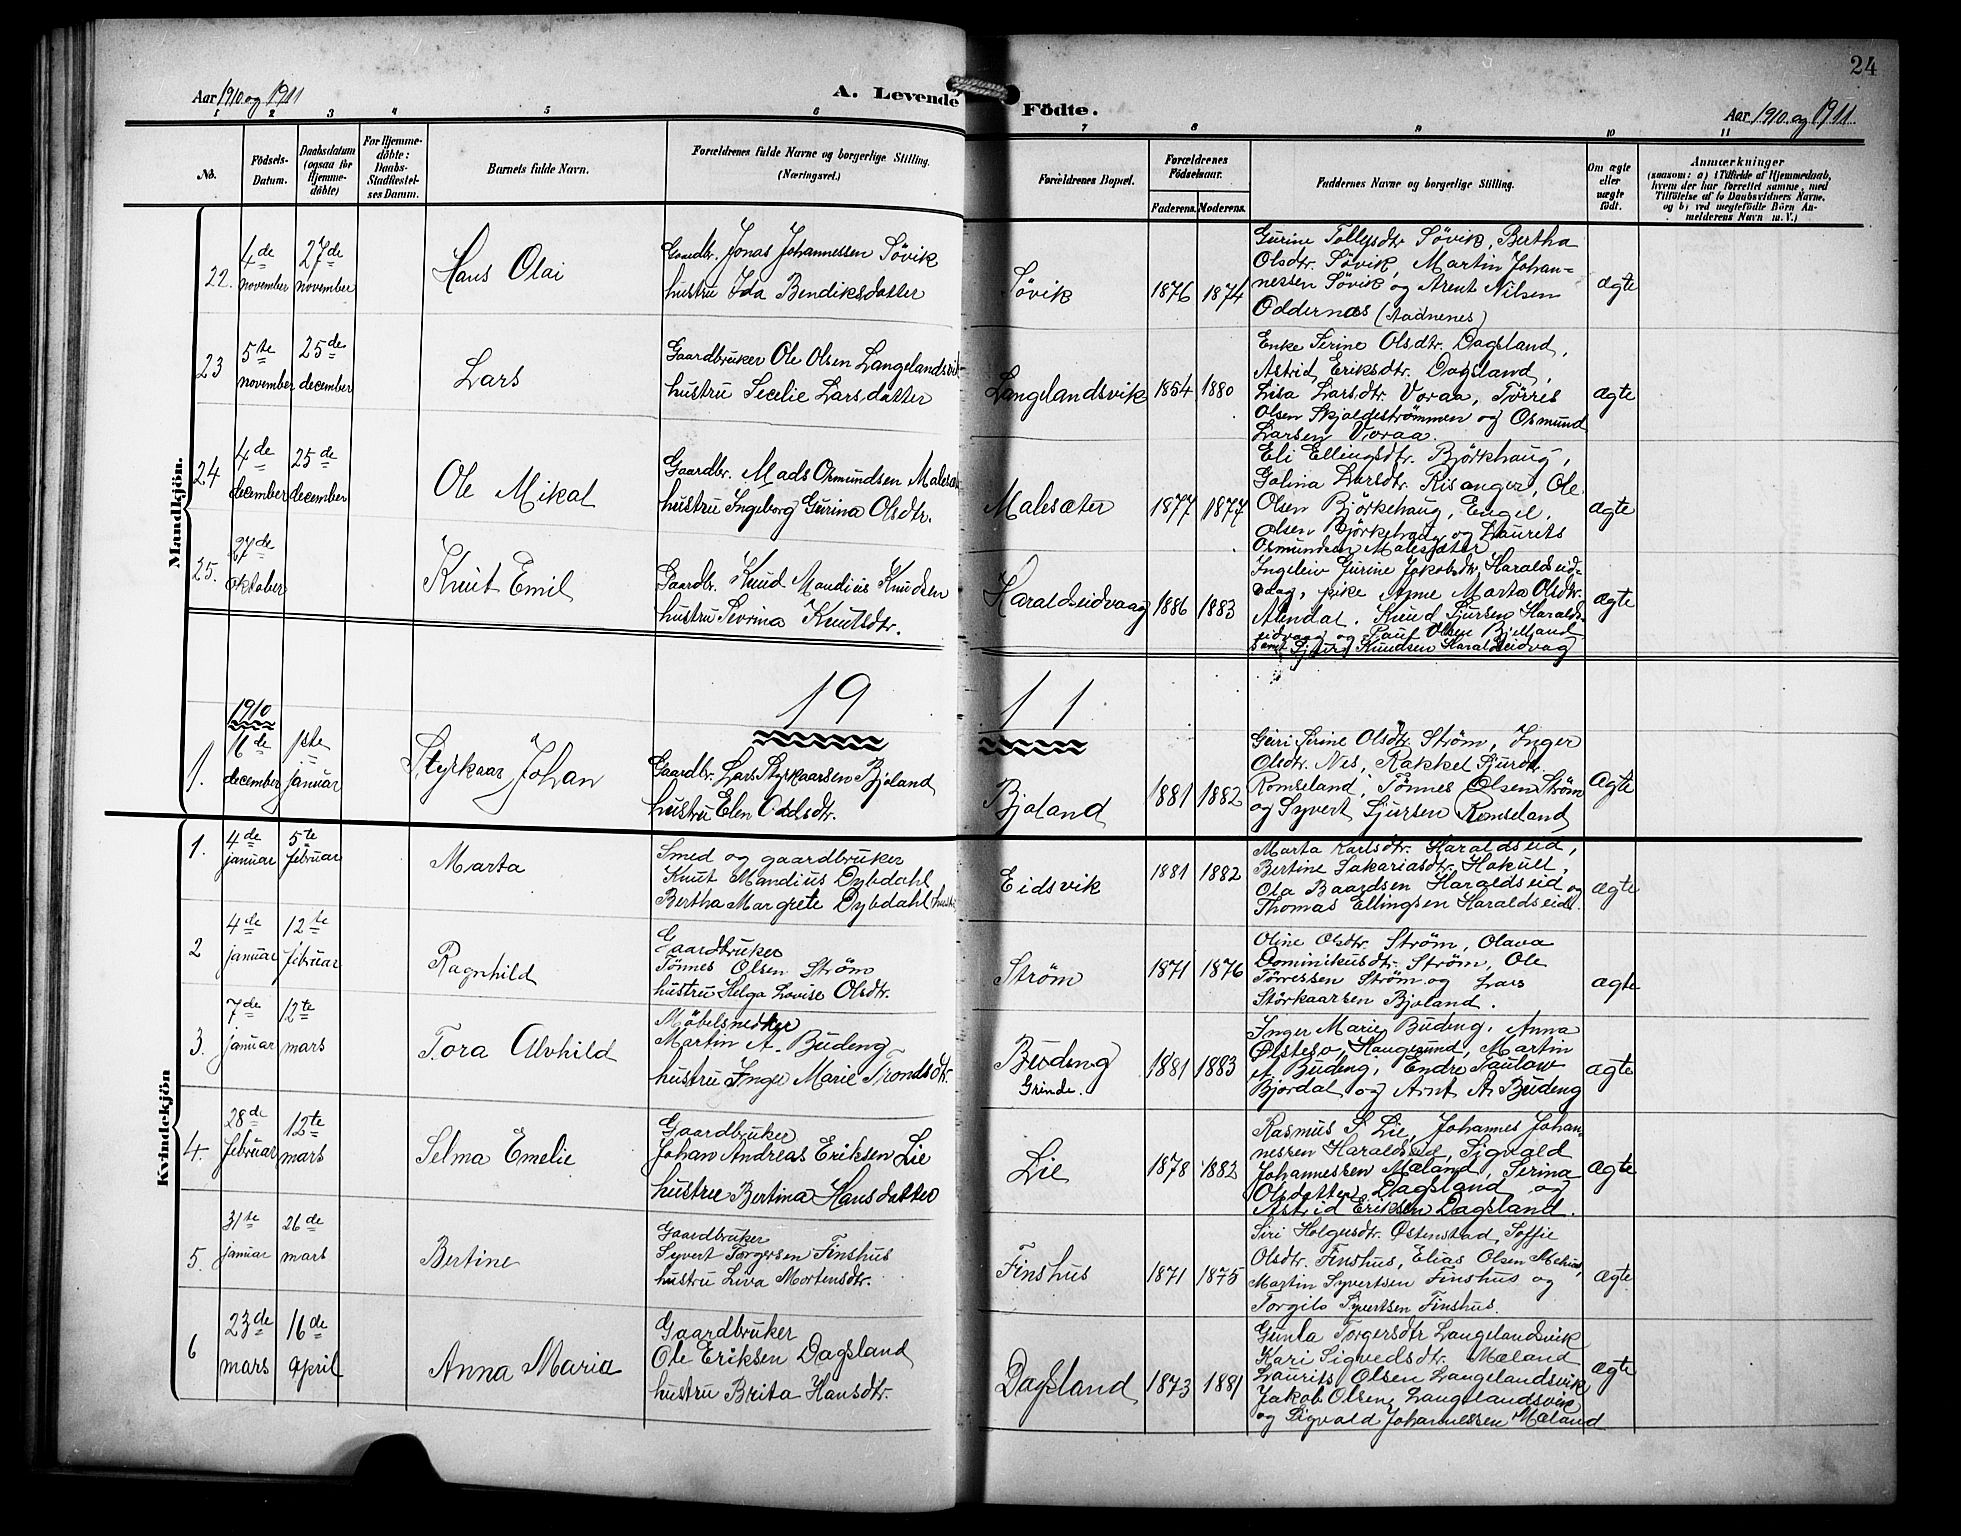 24
Aar 1910 og 1911
A. Levende Födte.
Aar 1910 og 1911
1 2 3 4 5 6 7 8 9 10 11
No.
Födsels-Datum.
Daabsdatum (ogsaa for Hjemme-döbte)
For Hjemme-döbte: Daabs-Stadfæstel-ses Datum.
Barnets fulde Navn.
Forældrenes fulde Navne og borgerlige Stilling. (Næringsvei.)
Forældrenes Bopæl.
Forældrenes Födselsaar.
Faderens. Moderens.
Faddernes Navne og borgerlige Stilling.
Om ægte eller uægte födt.
Anmærkninger
(saasom: a) i Tilfælde af Hjemmedaab,
hvem der har forrettet samme, med
Tilföielse af to Daabsvidners Navne,
og b) ved uægtefödte Börn An-
melderens Navn m. V.)
Mandkjön.
22. 4de november 27de november
Hans Olai
Gaardbr. Jonas Johannessen Søvik
hustru Ida Bendiksdatter
Søvik 1876 1874
Gurine Tollefsdtr Søvik, Bertha
Olsdtr. Søvik, Martin Johan-
nessen Søvik og Arent Nilsen
Oddernæs (Aadnenes)
ægte
23 5te november 25de december
Lars
Gaardbruker Ole Olsen Langelandsvik
hustru Secelie Larsdatter
Langelandsvik 1854 1880
Enke Serine Olsdtr. Dagsland,
Astrid Eriksdtr. Dagsland,
Lisa Larsdtr. Voraa, Tørres
Olsen Skjoldestrømmen og Osmund
Larsen Voraa.
ægte
24 4de december 25de december
Ole Mikal
Gaardbr. Mads Osmundsen Malesæter
hustru Ingeborg Gurina Olsdtr.
Malesæter 1877 1877
Eli Ellingsdtr. Bjørkhaug,
Golina Larsdtr. Risanger, Ole
Olsen Bjørkehaug, Engel
Olsen Bjørkehaug og Laurets
Osmundsen Malesæter
ægte
25. 27de oktober
Knut Emil
Gaardbr. Knud Mandius Knudsen
hustru Severina Knutsdtr.
Haraldseidvaag 1886 1883
Ingeleiv Gurine Jakobsdtr. Haraldseid-
vaag, pike Anne Marta Olsdtr.
Alendal. Knud Sjursen Haralds-
eidvaag og Paul Olsen Bjelland
samt Sjurs Knudsen Haraldseidvag
ægte
1911
1. 1910 16de december 1ste januar
Styrkaar Johan
Gaardbr. Lars Styrkaarsen Bjoland
hustru Elen Oddsdtr.
Bjoland 1881 1882
Guri Serine Olsdtr. Strøm, Inger
Olsdtr. Nes, Rakkel Sjursdtr.
Romseland, Tønnes Olsen Strøm
og Syvert Sjursen Romseland
Ægte
Kvindekjön
1. 4de januar 5te februar
Marta
Smed og gaardbruker
Knut Mandius Dybdahl
Bertha Margrete Dybdahl (hustr.
Eidsvik 1881 1882
Marta Karlsdtr. Haraldseid,
Bertine Sakariasdtr. Hokull,
Ola Baardsen Haraldseid og
Thomas Ellingsen Haraldseid.
ægte
2 4de januar 12te februar
Ragnhild
Gaardbruker
Tønnes Olsen Strøm
hustru Helga Lovise Olsdtr.
Strøm 1871 1876
Oline Olsdtr. Strøm, Olava
Dominikusdtr. Strøm, Ole
Tørressen Strøm og Lars
Störkaarsen Bjoland.
ægte
3. 7de januar 12te mars
Tora Alvhild
Møbelsnedker
Martin A. Budeng
hustru Inger Marie Trondsdtr.
Budeng
Grinde. 1881 1883
Inger Marie Budeng, Anna
Østesø, Haugesund, Martin
A. Budeng, Endre Paulow
Bjordal og Arnt A. Budeng
ægte
4. 28de februar 12te mars
Selma Emelie
Gaardbruker
Johan Andreas Eriksen Lie
hustru Bertina Hansdatter
Lie 1878 1882
Rasmus S. Lie, Johannes Johan-
nessen Haraldseid, Sigvald
Johannessen Mæland, Serina
Olsdatter Dagsland og
Astrid Eriksen Dagsland.
ægte
5. 31te januar 26de mars
Bertine
Gaardbruker
Syvert Torgersen Finshus
hustru Liva Mortensdtr.
Finshus 1871 1875
Siri Holgersdtr. Østenstad, Soffie
Olsdtr. Finshus, Elias Olsen
Martin Syvertsen Finshus og
Torgils Syvertsen Finshus.
ægte.
6 23de mars 16de april
Anna Maria
Gaardbruker
Ole Eriksen Dagsland
hustru Brita Hansdtr.
Dagsland 1873 1881
Gunla Torgersdtr Langelandsvik
Kari Sigvedsdtr. Mæland
Laurits Olsen Langelandsvik
Jakob Olsen Langelandsvik
og Sigvald Johannessen Mæland
ægte